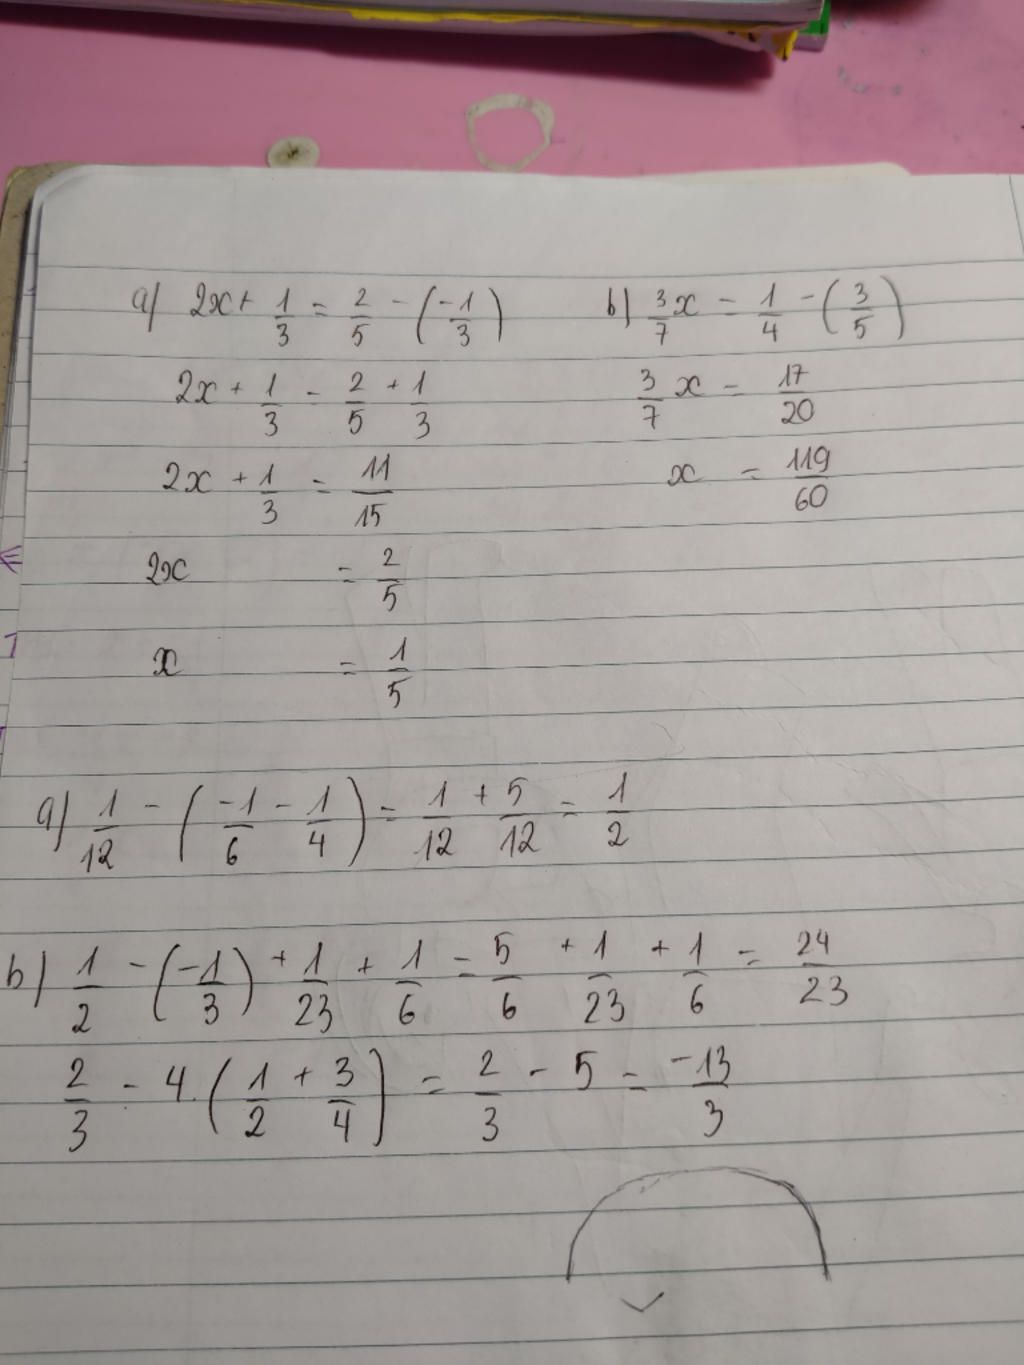 a) 2x + 1/3 = 2/5 - (-1/3)
2x + 1/3 = 2/5 + 1/3
2x + 1/3 = 11/15
2x = 2/5
x = 1/5
b) 3/7 x = 1/4 - (3/5)
3/7 x = 17/20
x = 119/60
a) 1/12 - (-1/6 - 1/4) = 1/12 + 5/12 = 1/2
b) 1/2 - (-1/3) + 1/23 + 1/6 = 5/6 + 1/23 + 1/6 = 24/23
2/3 - 4.(1/2 + 3/4) = 2/3 - 5 = -13/3